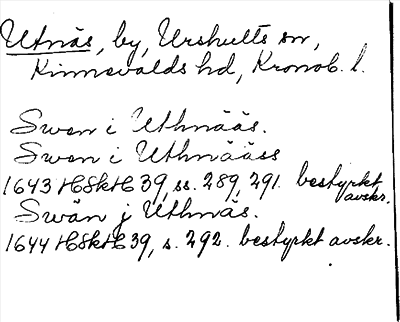 Utnäs, by, Urshults sn,
Kinnevalds hd, Kronob. l.
Swen i Uthnääs.
Swen i Uthnääss
1643 HSkH 39, ss. 289, 291. bestyrkt avskr.
Swän j Uthnäs.
1644 HSkH 39, s. 292. bestyrkt avskr.